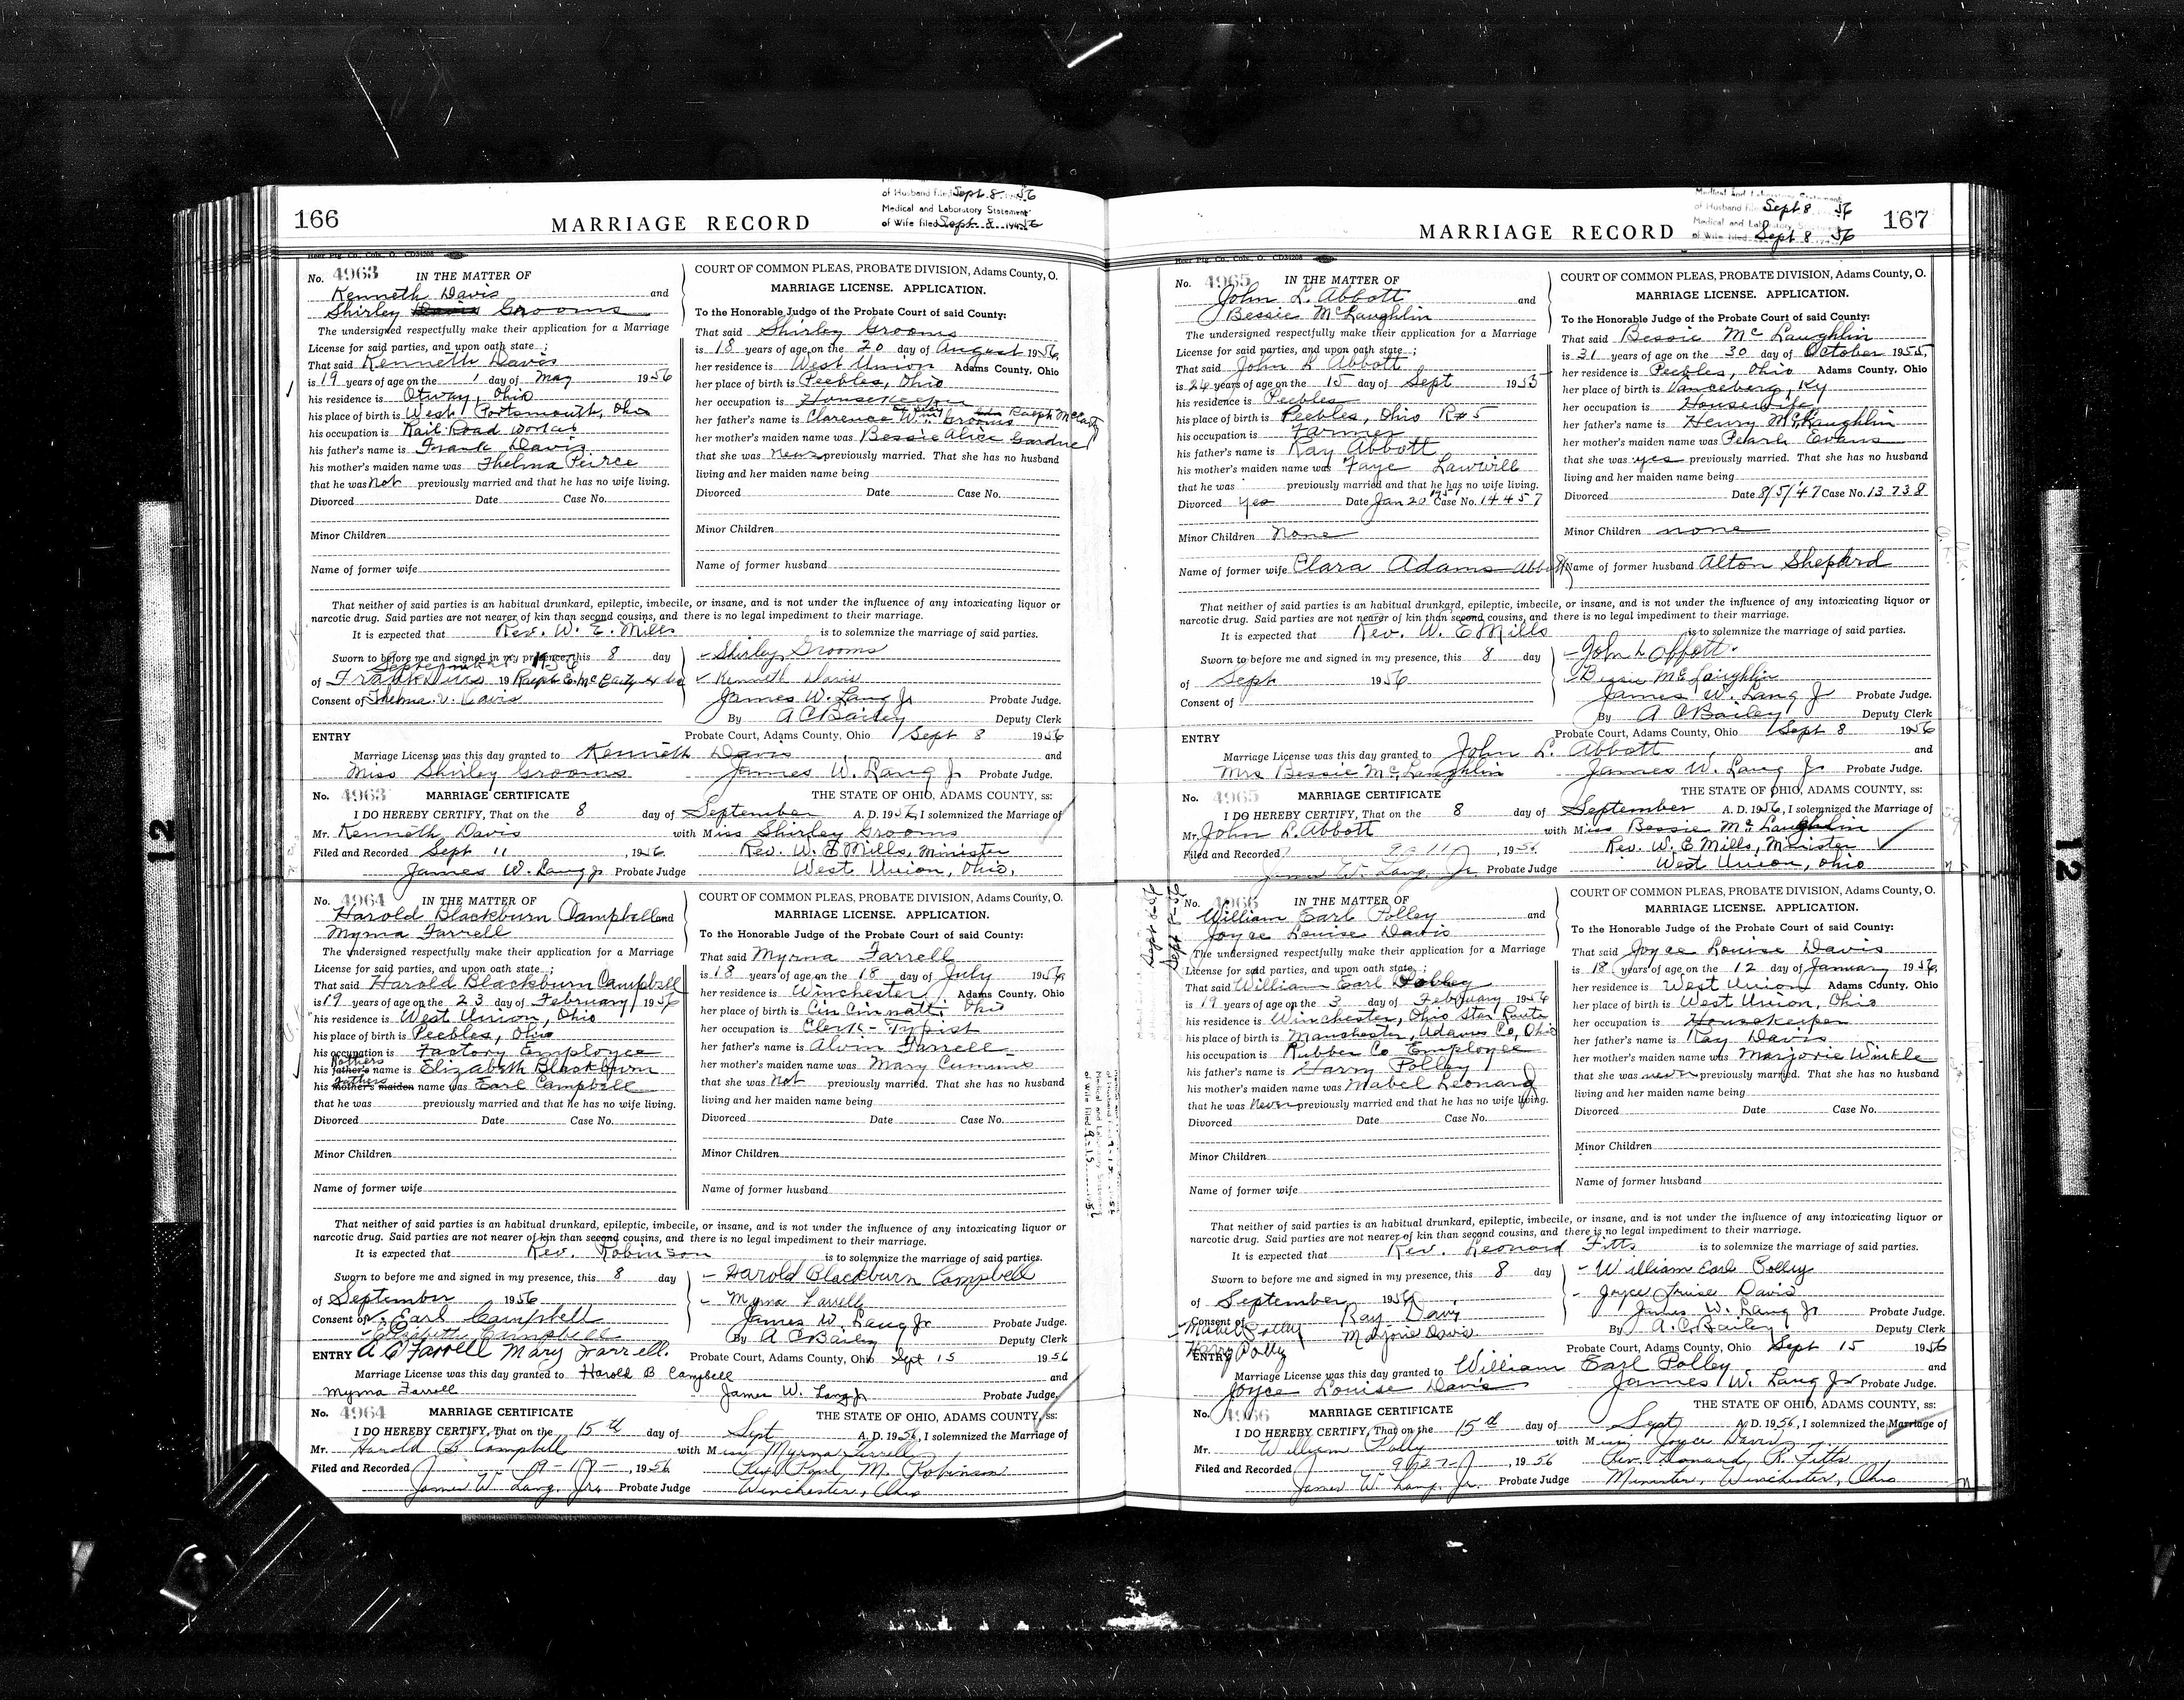 166
MARRIAGE RECORD
of Husband filed Sept. 8 56
Medical and Laboratory Statement
of Wife filed Sept. 8 56
No. 4963 IN THE MATTER OF
Kenneth Davis and
Shirley Davis Grooms
The undersigned respectfully make their application for a Marriage
License for said parties, and upon oath state ;
That said Kenneth Davis
is 19 years of age on the 1 day of May 1956
his residence is Otway, Ohio
his place of birth is West Portsmouth, Ohio
his occupation is Rail Road worker
his father's name is Frank Davis
his mother's maiden name was Thelma Peirce
that he was Not previously married and that he has no wife living.
Divorced Date Case No.
Minor Children
Name of former wife
COURT OF COMMON PLEAS, PROBATE DIVISION, Adams County, O.
MARRIAGE LICENSE. APPLICATION.
To the Honorable Judge of the Probate Court of said County:
That said Shirley Grooms
is 18 years of age on the 20 day of August 1956,
her residence is West Union Adams County, Ohio
her place of birth is Peebles, Ohio
her occupation is Housekeeper
her father's name is Clarence W. Grooms Ralph McCarty
her mother's maiden name was Bessie Alice Gardner
that she was never previously married. That she has no husband
living and her maiden name being
Divorced Date Case No.
Minor Children
Name of former husband
That neither of said parties is an habitual drunkard, epileptic, imbecile, or insane, and is not under the influence of any intoxicating liquor or
narcotic drug. Said parties are not nearer of kin than second cousins, and there is no legal impediment to their marriage.
It is expected that Rev. W. E. Mills is to solemnize the marriage of said parties.
Sworn to before me and signed in my presence, this 8 day
of September 1956
Frank Davis Ralph E. McCarty
Consent of Thelma V. Davis
Shirley Grooms
Kenneth Davis
James W. Lang Jr Probate Judge.
By A C Bailey Deputy Clerk
ENTRY Probate Court, Adams County, Ohio Sept 8 1956
Marriage License was this day granted to Kenneth Davis and
Miss Shirley Grooms James W. Lang Jr Probate Judge.
No. 4963 MARRIAGE CERTIFICATE THE STATE OF OHIO, ADAMS COUNTY, ss:
I DO HEREBY CERTIFY, That on the 8 day of September A. D. 1956, I solemnized the Marriage of
Mr. Kenneth Davis with Miss Shirley Grooms
Filed and Recorded Sept 11, 1956. Rev. W. E Mills, Minister
James W. Lang Jr Probate Judge West Union, Ohio.
No. 4964 IN THE MATTER OF
Harold Blackburn Campbell and
Myrna Farrell
The undersigned respectfully make their application for a Marriage
License for said parties, and upon oath state ;
That said Harold Blackburn Campbell
is 19 years of age on the 23 day of February 1956
his residence is West Union, Ohio
his place of birth is Peebles, Ohio
his occupation is Factory Employee
his Mothers father's name is Elizabeth Blackburn
his fathers mother's maiden name was Earl Campbell
that he was previously married and that he has no wife living.
Divorced Date Case No.
Minor Children
Name of former wife
COURT OF COMMON PLEAS, PROBATE DIVISION, Adams County, O.
MARRIAGE LICENSE. APPLICATION.
To the Honorable Judge of the Probate Court of said County:
That said Myrna Farrell
is 18 years of age on the 18 day of July 1956,
her residence is Winchester Adams County, Ohio
her place of birth is Cincinnatti Ohio
her occupation is Clerk - Typist
her father's name is Alvin Farrell
her mother's maiden name was Mary Cummins
that she was Not previously married. That she has no husband
living and her maiden name being
Divorced Date Case No.
Minor Children
Name of former husband
That neither of said parties is an habitual drunkard, epileptic, imbecile, or insane, and is not under the influence of any intoxicating liquor or
narcotic drug. Said parties are not nearer of kin than second cousins, and there is no legal impediment to their marriage.
It is expected that Rev. Robinson is to solemnize the marriage of said parties.
Sworn to before me and signed in my presence, this 8 day
of September 1956
Consent of Earl Campbell
Elizabeth Campbell
A C Farrell Mary Farrell.
Harold Blackburn Campbell
Myrna Farrell
James W. Lang Jr Probate Judge.
By A C Bailey Deputy Clerk
ENTRY Probate Court, Adams County, Ohio Sept 15 1956
Marriage License was this day granted to Harold B Campbell and
Myrna Farrell James W. Lang Jr Probate Judge.
No. 4964 MARRIAGE CERTIFICATE THE STATE OF OHIO, ADAMS COUNTY, ss:
I DO HEREBY CERTIFY, That on the 15th day of Sept A. D. 1956, I solemnized the Marriage of
Mr. Harold B Campbell with Miss Myrna Farrell
Filed and Recorded 9-17-, 1956 Rev Paul M. Robinson
James W. Lang, Jr. Probate Judge Winchester, Ohio
of Wife filed 9-15 56
Medical and Laboratory Statement
167
MARRIAGE RECORD
Medical and Laboratory Statement
of Husband filed Sept 8 56
Medical and Laboratory Statement
of Wife filed Sept 8 56
No. 4965 IN THE MATTER OF
John L. Abbott and
Bessie McLaughlin
The undersigned respectfully make their application for a Marriage
License for said parties, and upon oath state ;
That said John L Abbott
is 26 years of age on the 15 day of Sept 1955
his residence is Peebles
his place of birth is Peebles, Ohio R#5
his occupation is Farmer
his father's name is Ray Abbott
his mother's maiden name was Faye Lawwill
that he was previously married and that he has no wife living.
Divorced yes Date Jan 20 1951 Case No. 14457
Minor Children None
Name of former wife Clara Adams Abbott
COURT OF COMMON PLEAS, PROBATE DIVISION, Adams County, O.
MARRIAGE LICENSE. APPLICATION.
To the Honorable Judge of the Probate Court of said County:
That said Bessie Mc Laughlin
is 31 years of age on the 30 day of October 1955,
her residence is Peebles, Ohio Adams County, Ohio
her place of birth is Vanceberg, Ky
her occupation is Housewife
her father's name is Henry McLaughlin
her mother's maiden name was Pearl Evans
that she was yes previously married. That she has no husband
living and her maiden name being
Divorced Date 8/5/47 Case No. 13738
Minor Children none
Name of former husband Alton Shepard
That neither of said parties is an habitual drunkard, epileptic, imbecile, or insane, and is not under the influence of any intoxicating liquor or
narcotic drug. Said parties are not nearer of kin than second cousins, and there is no legal impediment to their marriage.
It is expected that Rev. W. E Mills is to solemnize the marriage of said parties.
Sworn to before me and signed in my presence, this 8 day
of Sept 1956
Consent of
John L Abbott
Bessie McLaughlin
James W. Lang Jr Probate Judge.
By A C Bailey Deputy Clerk
ENTRY Probate Court, Adams County, Ohio Sept 8 1956
Marriage License was this day granted to John L. Abbott and
Mrs Bessie McLaughlin James W. Lang Jr Probate Judge.
No. 4965 MARRIAGE CERTIFICATE THE STATE OF OHIO, ADAMS COUNTY, ss:
I DO HEREBY CERTIFY, That on the 8 day of September A. D. 1956, I solemnized the Marriage of
Mr. John L. Abbott with Miss Bessie McLaughlin
Filed and Recorded 9-11, 1956 Rev. W. E Mills, Minister
James W. Lang, Jr. Probate Judge West Union, Ohio
Sept 8-56
Sept 8-56
No. 4966 IN THE MATTER OF
William Earl Polley and
Joyce Louise Davis
The undersigned respectfully make their application for a Marriage
License for said parties, and upon oath state ;
That said William Earl Polley
is 19 years of age on the 3 day of February 1956
his residence is Winchester, Ohio Star Route
his place of birth is Manchester, Adams Co, Ohio
his occupation is Rubber Co Employee
his father's name is Harry Polley
his mother's maiden name was Mabel Leonard
that he was Never previously married and that he has no wife living.
Divorced Date Case No.
Minor Children
Name of former wife
COURT OF COMMON PLEAS, PROBATE DIVISION, Adams County, O.
MARRIAGE LICENSE. APPLICATION.
To the Honorable Judge of the Probate Court of said County:
That said Joyce Louise Davis
is 18 years of age on the 12 day of January 1956,
her residence is West Union Adams County, Ohio
her place of birth is West Union, Ohio
her occupation is Housekeeper
her father's name is Ray Davis
her mother's maiden name was Marjorie Winkle
that she was never previously married. That she has no husband
living and her maiden name being
Divorced Date Case No.
Minor Children
Name of former husband
That neither of said parties is an habitual drunkard, epileptic, imbecile, or insane, and is not under the influence of any intoxicating liquor or
narcotic drug. Said parties are not nearer of kin than second cousins, and there is no legal impediment to their marriage.
It is expected that Rev. Leonard Fitts is to solemnize the marriage of said parties.
Sworn to before me and signed in my presence, this 8 day
of September 1956
Consent of Ray Davis
Mabel Polley Marjorie Davis
Harry Polley
William Earl Polley
Joyce Louise Davis
James W. Lang Jr Probate Judge.
By A. C. Bailey Deputy Clerk
ENTRY Probate Court, Adams County, Ohio Sept 15 1956
Marriage License was this day granted to William Earl Polley and
Joyce Louise Davis James W. Lang Jr Probate Judge.
No. 4966 MARRIAGE CERTIFICATE THE STATE OF OHIO, ADAMS COUNTY, ss:
I DO HEREBY CERTIFY, That on the 15th day of Sept A. D. 1956, I solemnized the Marriage of
Mr. William Polly with Miss Joyce Davis
Filed and Recorded 9-27-, 1956 Rev. Leonard R. Fitts
James W. Lang, Jr. Probate Judge Minister, Winchester, Ohio
12
12